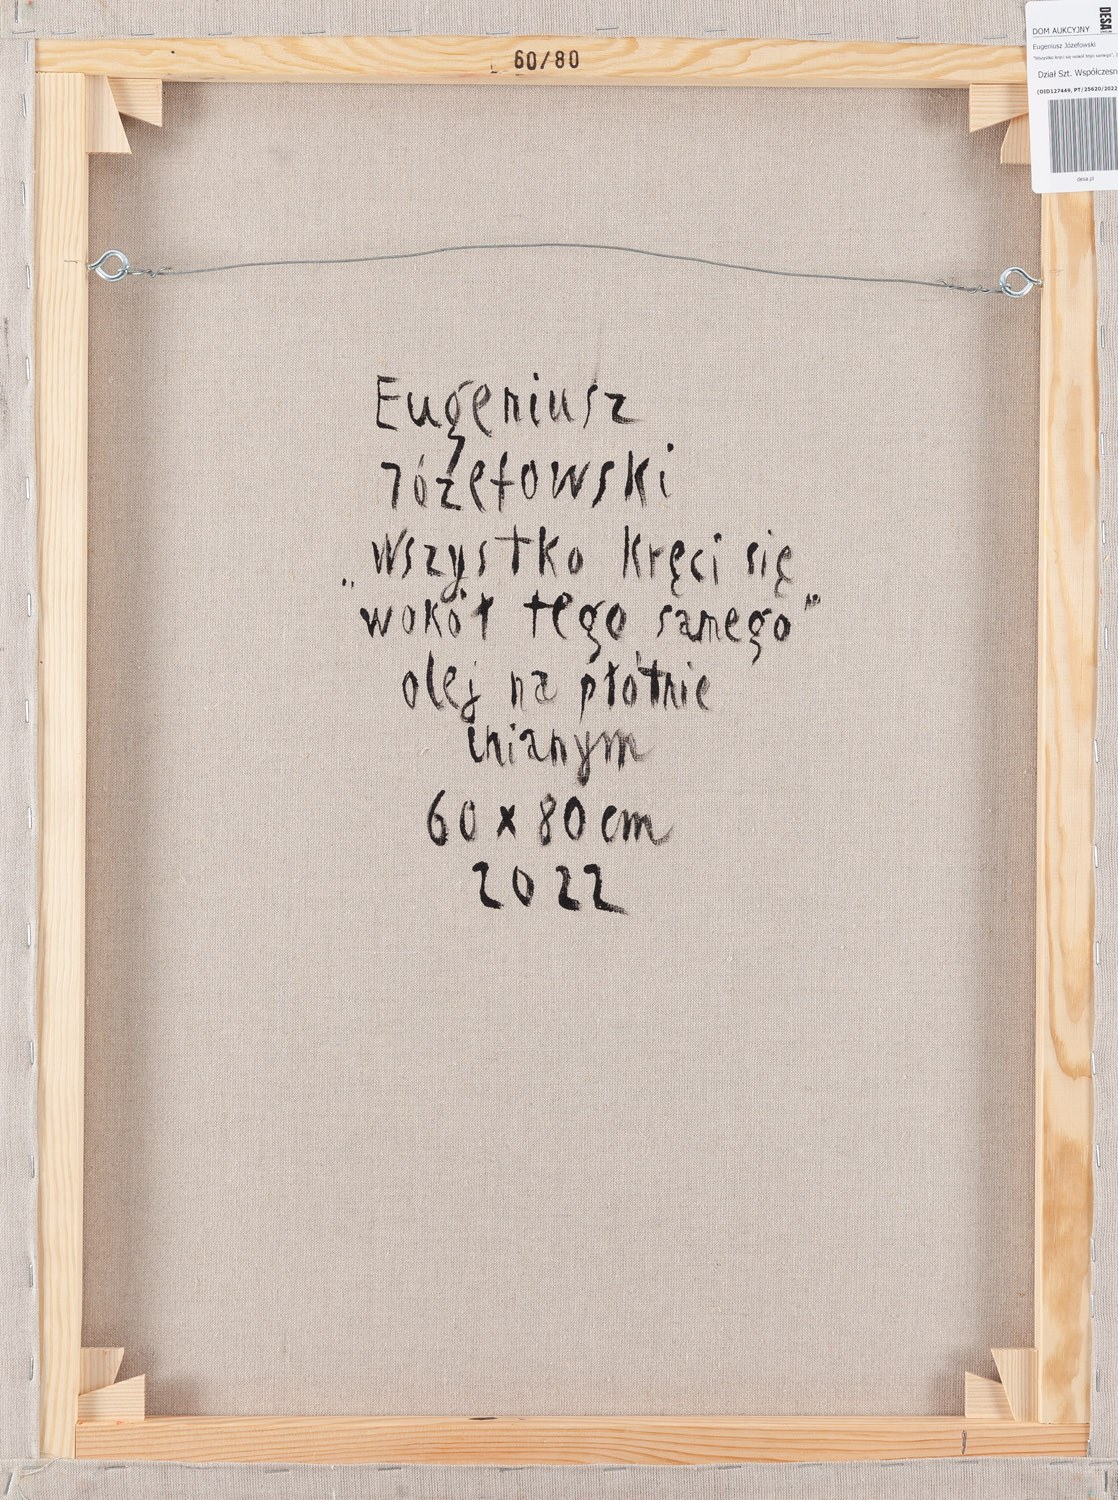 60/80
DESA
DOM AUKCYJNY
Eugeniusz Józefowski
"Wszystko kręci się wokół tego samego",
Dział Szt. Współczesn
(OID127449, PT/25620/2022
desa.pl
Eugeniusz
Józefowski
„Wszystko kręci się
wokół tego samego”
olej na płótnie
lnianym
60 x 80 cm
2022